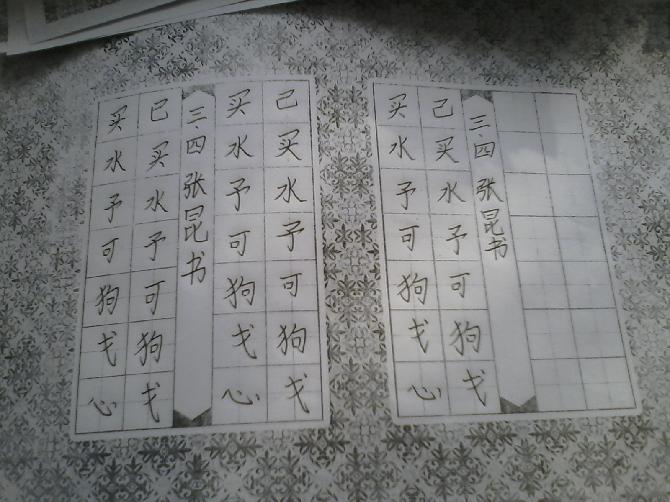 己买水予可狗戈
买水予可狗弋心
三.四张昆书
己买水予可狗弋
买水予可狗弋心
三.四张昆书
己买水予可狗弋
买水予可狗弋心